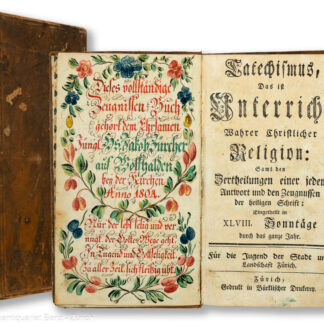 Dieses vollständige
Zeugnissen Buch
gehört dem Ehrsamen
Jüngl. Hs. Jakob Zürcher
auf
bey der Kirchen
Anno 1804.
Nur der lebt selig und ver
nügt, der Gottes Wege geht,
In Tugend und
Zu aller Zeit sich fleißig übt.
Catechismus,
Das ist
Unterrich
Wahrer Christlicher
Religion:
Samt den
Zertheilungen einer jeden
Antwort und den Zeugnussen
der heiligen Schrift;
abgetheilet in
XLVIII. Sonntäge
durch das ganze Jahr.
Für die Jugend der Stadt un
Landschaft Zürich.
Zürich,
Gedruckt in Bürklischer Druckerey.